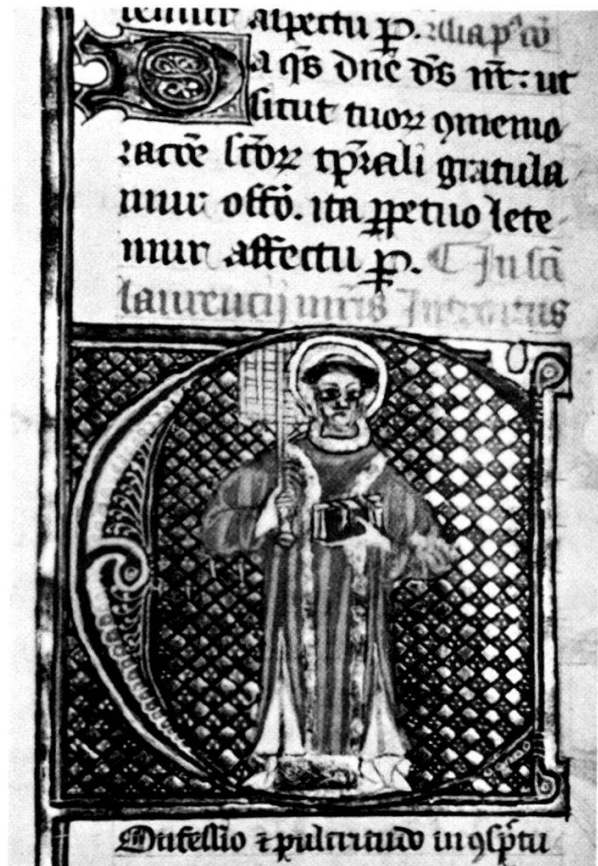 temur aspectu p. Alia p' cō
Da q̄s dn̄e d̄s nr̄: ut
sicut tuoꝝ ꝯmemo
racōe sc̄oꝝ tp̄rali gratula
mur offō. ita ꝑpetuo lete
mur affectu p. ⸿ In sc̄i
laurencij mr̄is Introitus
Cōnfessio ⁊ pulcritudo in ꝯsp̄tu